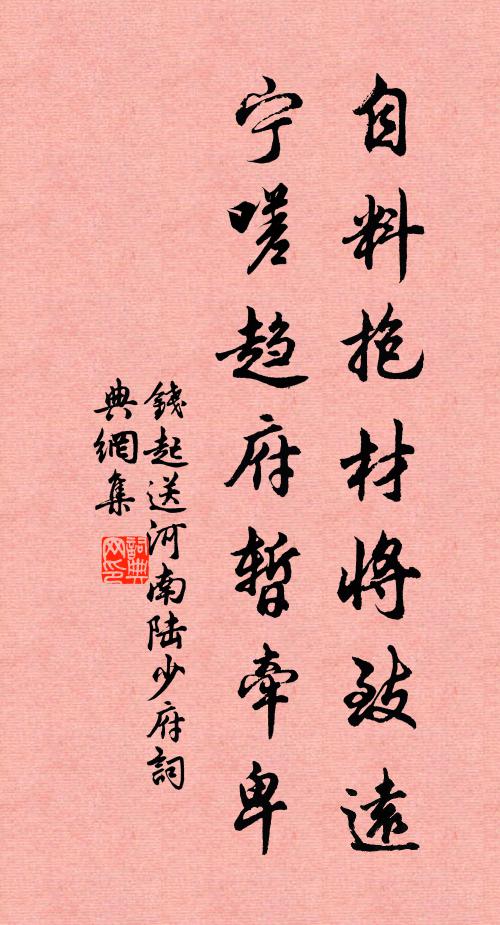 自料抱材将致遠
宁嗟趋府暫牽卑
錢起送河南陆少府詞
典網集
詞典
网印